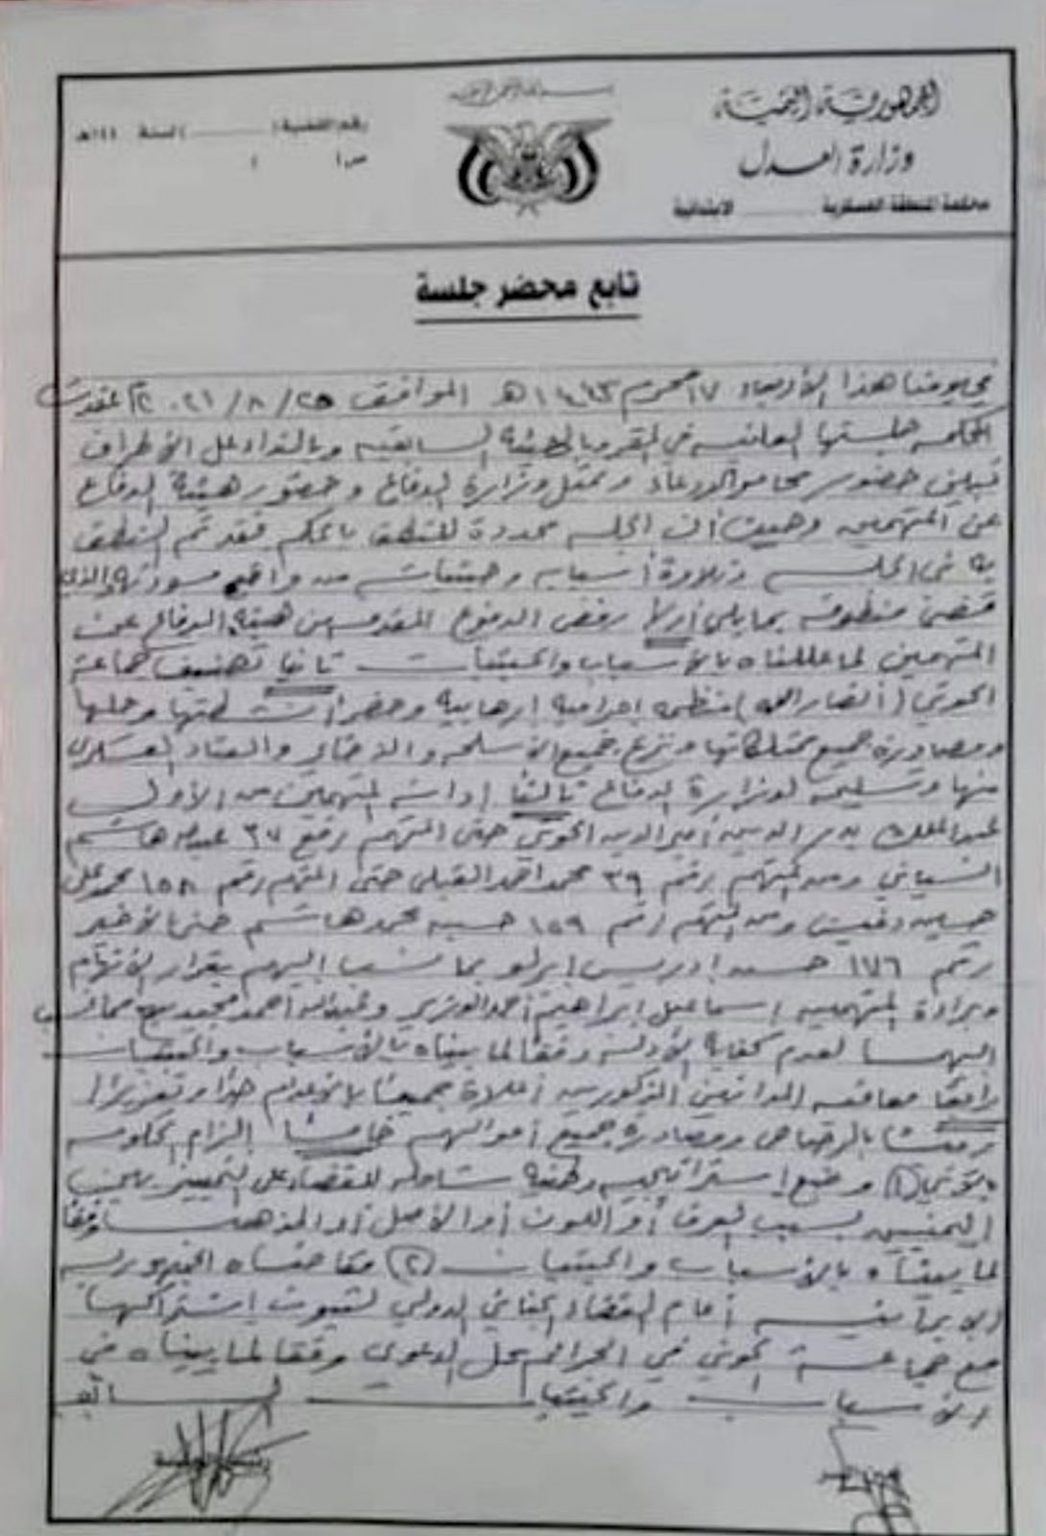 الجمهورية اليمنية
وزارة العدل
محكمة المنطقة العسكرية ............ الابتدائية
رقم القضية (............) لسنة ١٤٤ هـ
ص (            )
تابع محضر جلسة
في يومنا هذا الأربعاء ١٧ محرم ١٤٤٣هـ الموافق ٢٥/٨/٢٠٢١م عقدت
المحكمة جلستها العلنية في المقر وبالهيئة السابقة وبالنداء على الأطراف
تبين حضور محامو الادعاء وممثل وزارة الدفاع وحضور هيئة الدفاع
عن المتهمين وحيث أن الجلسة محددة للنطق بالحكم فقد تم النطق
به في الجلسة وتلاوة أسبابه وحيثياته من واقع مسودته والذي
قضى منطوقه بما يلي أولاً رفض الدفوع المقدمة من هيئة الدفاع عن
المتهمين لما عللناه بالأسباب والحيثيات ثانيا تصنيف جماعة
الحوثي (أنصار الله) منظمة إجرامية إرهابية وحضر أنشطتها وحلها
ومصادرة جميع ممتلكاتها ونزع جميع الأسلحة والذخائر والعتاد العسكري
منها وتسليمه لوزارة الدفاع ثالثاً إدانة المتهمين من الأول
عبدالملك بدر الدين أمير الدين الحوثي حتى المتهم رقم ٣٧ عبدالله هاشم
السياني ومن المتهم رقم ٣٩ محمد احمد القبلي حتى المتهم رقم ١٥٨ محمد علي
حسين ومن المتهم رقم ١٥٩ حسين محمد هاشم حتى الأخير
رقم ١٧٦ حسن إدريس إيرلو بما نسب إليهم بقرار الاتهام
وبراءة المتهمين إسماعيل إبراهيم أحمد الوزير وعبدالله احمد مما نسب
إليهما لعدم كفاية الأدلة وفقاً لما بيناه بالأسباب والحيثيات
رابعًا معاقبة المدانين المذكورين أعلاه جميعًا بالإعدام حدًا وتعزيرًا
رميًا بالرصاص ومصادرة جميع أموالهم خامسًا إلزام الحكومة
بالآتي (١) وضع إستراتيجية وطنية شاملة للقضاء على التمييز بين
اليمنيين بسبب العرق أو اللون أو الأصل أو المذهب وفقا
لما بيناه بالأسباب والحيثيات (٢) مقاضاة الجمهورية
الإيرانية أمام القضاء الجنائي الدولي لثبوت إشتراكها
مع جماعة الحوثي في الجرائم محل الدعوى وفقا لما بيناه في
الأسباب والحيثيات